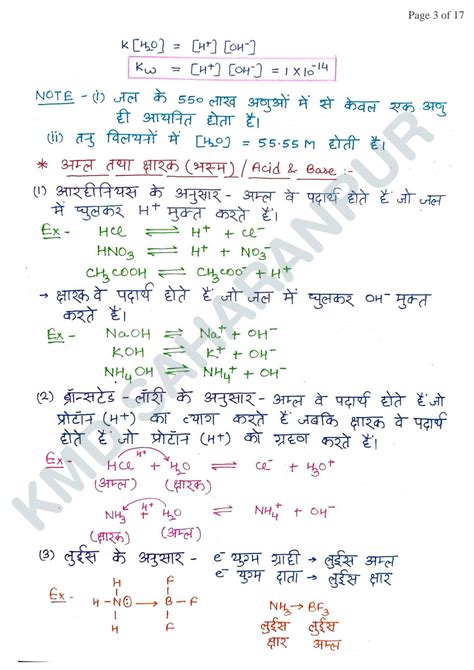 Page 3 of 17
K[H₂O] = [H⁺] [OH⁻]
Kw = [H⁺] [OH⁻] = 1×10⁻¹⁴
NOTE - (i) जल के 550 लाख अणुओं में से केवल एक अणु
ही आयनित होता है।
(ii) तनु विलयनों में [H₂O] = 55.55 M होती है।
* अम्ल तथा क्षारक (भस्म) / Acid & Base :-
(1) आरहीनियस के अनुसार - अम्ल वे पदार्थ होते हैं जो जल
में घुलकर H⁺ मुक्त करते हैं।
Ex - HCl ⇌ H⁺ + Cl⁻
HNO₃ ⇌ H⁺ + NO₃⁻
CH₃COOH ⇌ CH₃COO⁻ + H⁺
→ क्षारक वे पदार्थ होते हैं जो जल में घुलकर OH⁻ मुक्त
करते हैं।
Ex - NaOH ⇌ Na⁺ + OH⁻
KOH ⇌ K⁺ + OH⁻
NH₄OH ⇌ NH₄⁺ + OH⁻
(2) ब्रॉन्सटेड - लॉरी के अनुसार - अम्ल वे पदार्थ होते हैं जो
प्रोटॉन (H⁺) का त्याग करते हैं जबकि क्षारक वे पदार्थ
होते हैं जो प्रोटॉन (H⁺) को ग्रहण करते हैं।
H⁺
Ex - HCl + H₂O ⇌ Cl⁻ + H₃O⁺
(अम्ल) (क्षारक)
H⁺
NH₃ + H₂O ⇌ NH₄⁺ + OH⁻
(क्षारक) (अम्ल)
(3) लुईस के अनुसार - e⁻ युग्म ग्राही → लुईस अम्ल
e⁻ युग्म दाता → लुईस क्षार
Ex -
H F
H - N: → B - F
H F
NH₃ → BF₃
लुईस लुईस
क्षार अम्ल
KMD SAHARANPUR